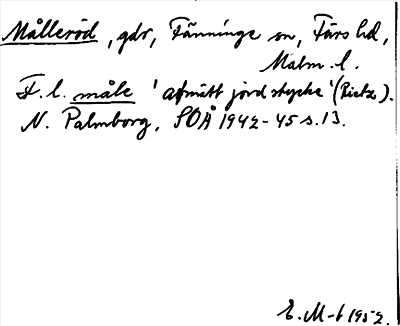 Målleröd, gdr, Fänninge sn, Färs hd,
Malm. l.
F. l. måle 'afmätt jordstycke' (Rietz).
N. Palmborg, SOÅ 1942-45 s. 13.
E. M-t 1952.